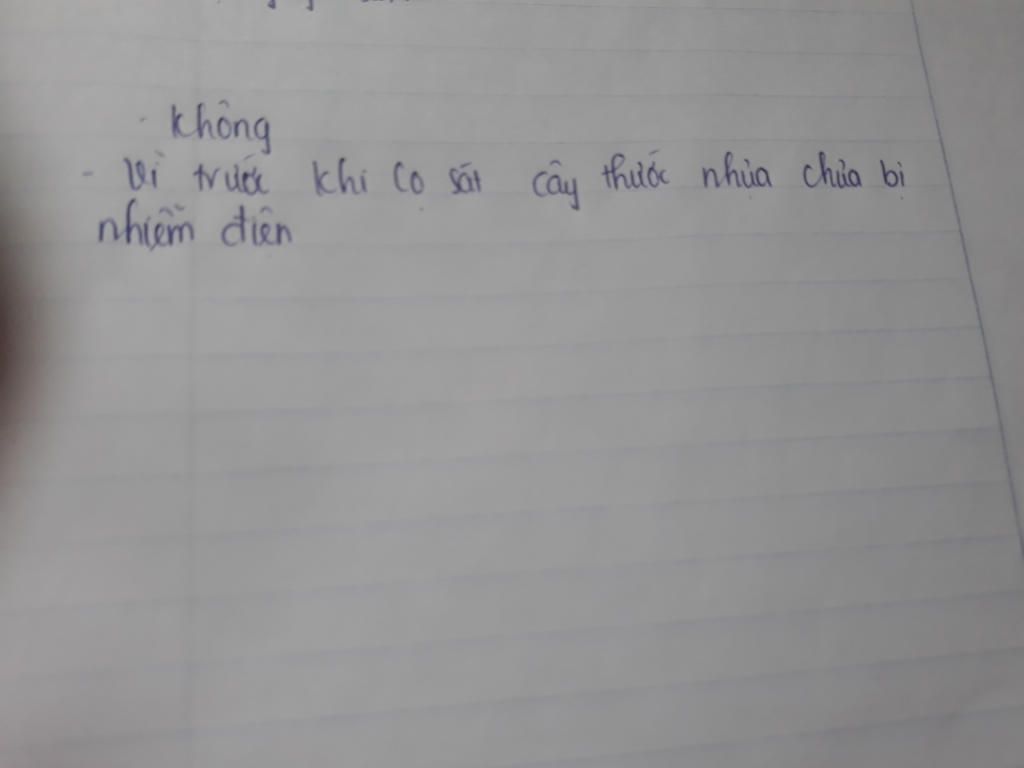 - Không
- Vì trước khi cọ sát cây thước nhựa chưa bị
nhiễm điện